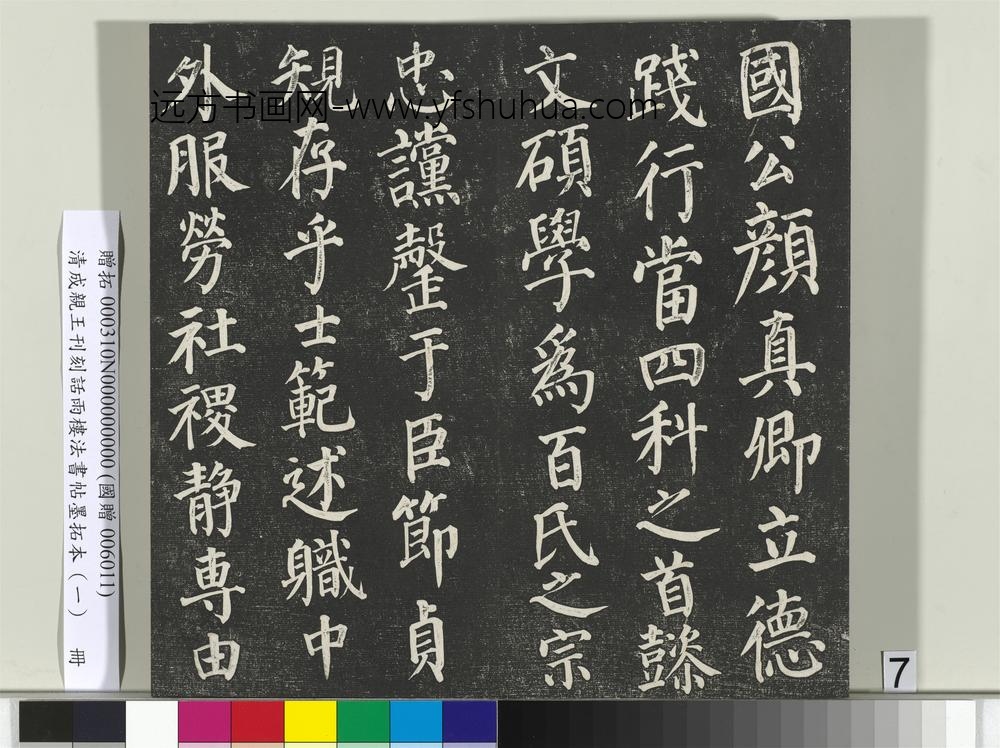 國公顔真卿立德
踐行當四科之首懿
文碩學為百氏之宗
忠讜罄于臣節貞
規存乎士範述職中
外服勞社稷静専由
远方书画网-www.yfshuhua.com
贈拓 000310N000000000 (國贈 006011)
清成親王刊刻話雨樓法書帖墨拓本(一) 冊
7